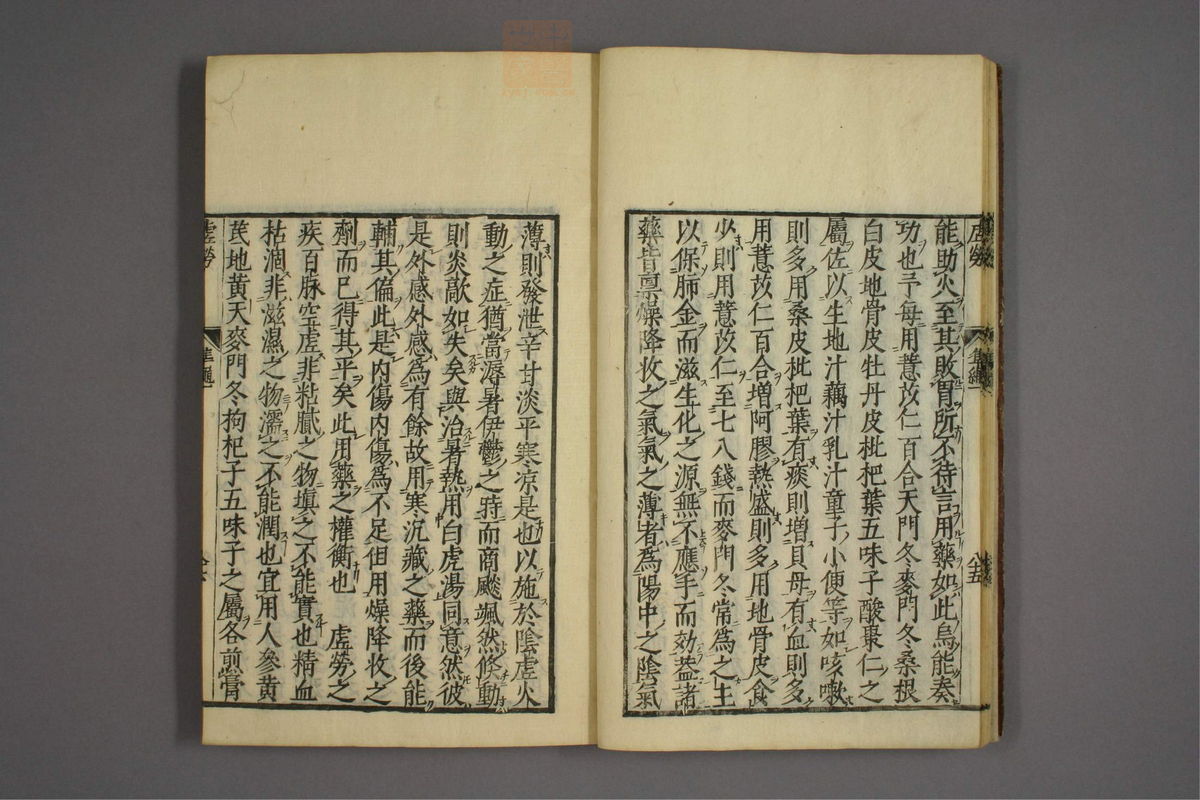 虛勞
能助火至其敗胃所不待言用藥如此烏能奏
功也予每用薏苡仁百合天門冬麥門冬桑根
白皮地骨皮牡丹皮枇杷葉五味子酸棗仁之
屬佐以生地汁藕汁乳汁童子小便等如咳嗽
則多用桑皮枇杷葉有痰則增貝母有血則多
用薏苡仁百合增阿膠熱盛則多用地骨皮食
少則用薏苡仁至七八錢而麥門冬常爲之主
以保肺金而滋生化之源無不應手而効蓋諸
藥皆稟燥降收之氣氣之薄者爲陽中之陰氣
薄則發泄辛甘淡平寒凉是也以施於陰虛火
動之症猶當溽暑伊鬱之時而商飈颯然倐動
則炎歊如失矣與治暑熱用白虎湯同意然彼
是外感外感爲有餘故用寒沉藏之藥而後能
輔其偏此是內傷內傷爲不足但用燥降收之
劑而已得其平矣此用藥之權衡也 虛勞之
疾百脉空虛非粘膩之物塡之不能實也精血
枯涸非滋濕之物濡之不能潤也宜用人參黃
芪地黃天麥門冬拘杞子五味子之屬各煎膏
虛勞